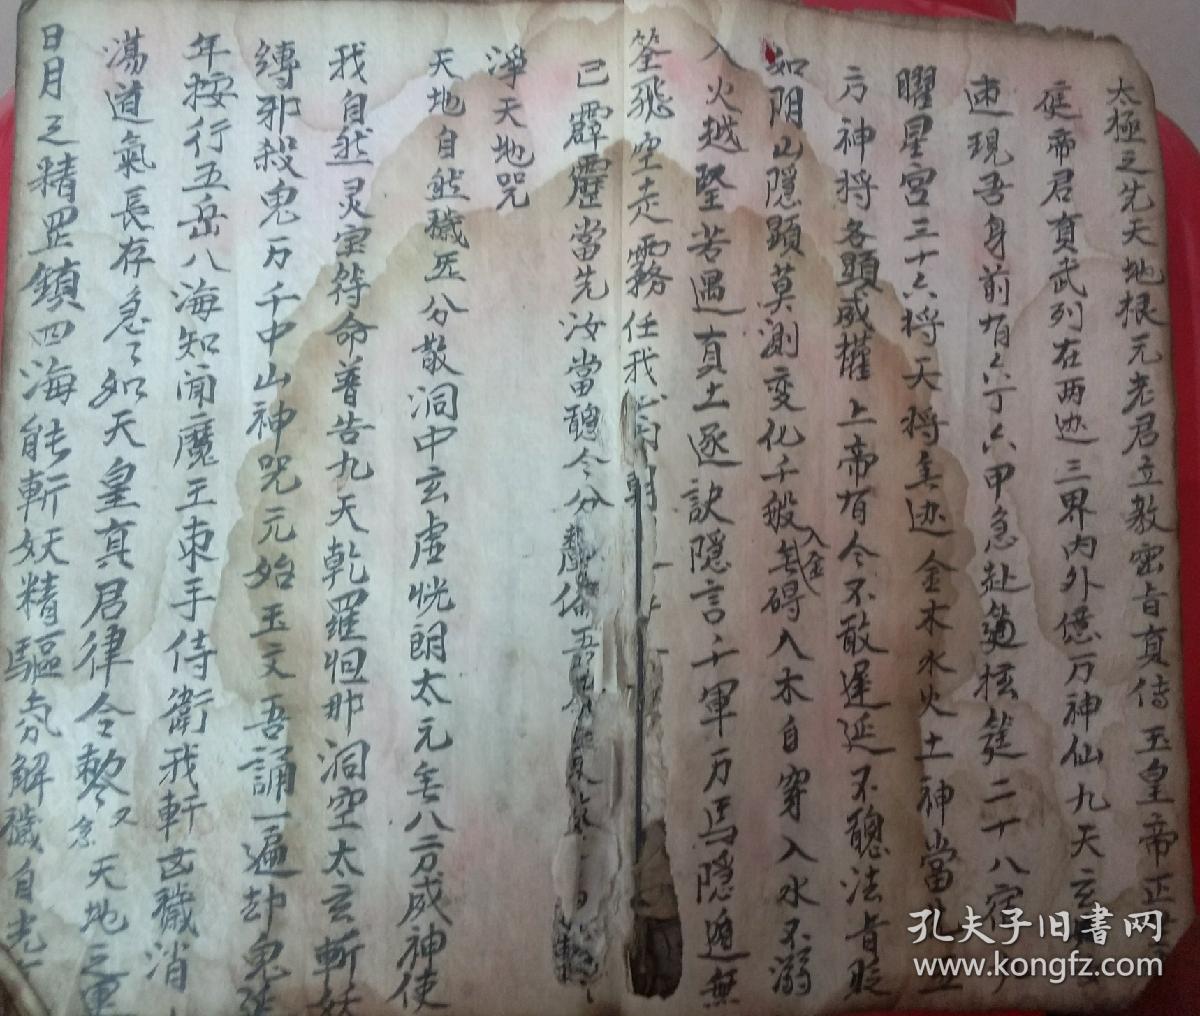 太極之先天地根元老君立教密旨真傳玉皇帝正
庭帝君真武列在两边三界内外億万神仙九天玄
速現吾身前有六丁六甲急赴筵二十八宿
曜星宫三十六将天将無边金木水火土神當
六神将各顕成權上帝有令不敢遲延不聽法旨貶
如阴山隱顕莫測变化千般無碍入木自穿入水不溺
入金
入火越堅若遇真土逐訣隱言千軍万馬隱遁無
筌飛空走霧任我心
已霹靂當先汝當聽令分
淨天地咒
天地自然穢炁分散洞中玄虚恍朗太元無八方成神使
我自然灵宝符命普告九天乾羅怛那洞空太玄斬妖
縛邪殺鬼万千中山神咒元始玉文吾誦一遍却鬼延
年按行五岳八海知聞魔王束手侍衛我軒凶穢消
蕩道氣長存急々如天皇真君律令勅 又念 天地之
日月之精罡鎮四海能斬妖精驅氛解穢自光
孔夫子旧書网
www.kongfz.com